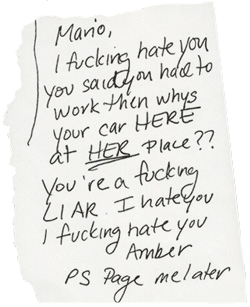 Mario,
I fucking hate you
you said you had to
work then whys
your car HERE
at HER place??
You're a fucking
LIAR. I hate you
I fucking hate you
Amber
PS Page me later